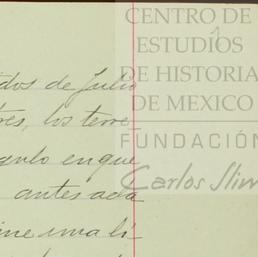 CENTRO DE
ESTUDIOS
DE HISTORIA
DE MEXICO
FUNDACIÓN
Carlos Slim
dos de Julio
tres, los terre-
en que
antes
una li-